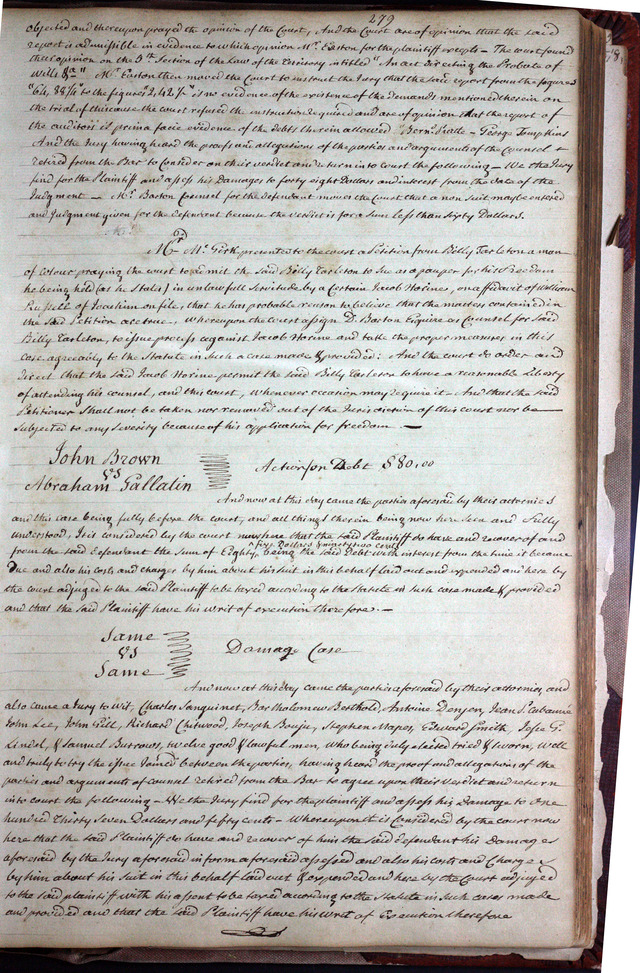 279
objected and thereupon prayed the opinion of the Court, And the Court are of opinion that the said
report is admissible in evidence to which opinion Mr. Easton for the plaintiff excepts – The court found
their opinion on the 5th Section of the Law of the Territory intitled "An act directing the Probate of
Wills &a" Mr. Easton then moved the Court to instruct the Jury that the said report from the figures
to the figures is no evidence of the existence of the Demands mentioned therein on
the trial of this cause the court refused the instruction required and are of opinion that the report of
the auditors is prima facie evidence of the Debts therein allowed Bernd. Pratte – George Tompkins
And the Jury having heard the proofs and allegations of the parties and arguments of the Counsel &
retired from the Bar to Consider on their verdict and return into court the following – We the Jury
find for the Plaintiff and assess his Damages to forty eight Dollars and interest from the date of the
Judgment – Mr. Barton Counsel for the defendant moves the Court that a non suit may be entered
and Judgment given for the defendant because the verdict is for a sum less than sixty Dollars.
Mr. McGirk presented to the court a Petition from Billy Tarleton a man
of colour praying the court to admit the said Billy Tarleton to sue as a pauper for his freedom
he being held (as he states) in unlawfull servitude by a Certain Jacob Horine, on affidavit of William
Russell of Joachim on file, that he has probable reason to believe that the matters contained in
the said Petition are true, whereupon the court assign D. Barton Esquire as Counsel for said
Billy Tarleton, to issue process against Jacob Horine and take the proper measures in this
case agreeably to the Statute in such a case made & provided: And the court do order and
direct that the said Jacob Horine permit the said Billy Tarleton to have a reasonable Liberty
of attending his counsel, and this court, whenever occasion may require it – And that the said
Petitioner shall not be taken nor removed out of the Jurisdiction of this court nor be
subjected to any severity because of his application for freedom –
John Brown
vs
Abraham Gallatin
Action on Debt $80.00
And now at this day came the parties aforesaid by their attornies
and this case being fully before the court, and all things therein being now here seen and fully
understood, It is considered by the court now here that the said Plaintiff do have and recover of and
from the said defendant the Sum of Eighty, being the said Debt with interest from the time it became
Due and also his costs and charges by him about his suit in this behalf laid out and expended and here by
the court adjudged to the said Plaintiff to be taxed according to the Statute in such case made & provided
and that the said Plaintiff have his writ of execution therefore. –
Same
vs
Same
Damage Case
And now at this day came the parties aforesaid by their attornies, and
also came a Jury to wit, Charles Sanguinet, Bartholomew Berthold, Antoine Dangen, Jean P. Cabanné
John Lee, John Gill, Richard Chitwood, Joseph Bouju, Stephen Mapes, Edward Smith, Jesse G.
Lindel, & Samuel Burrows, twelve good & lawful men, who being duly elected tried & sworn, well
and truly to try the issue Joined between the parties, having heard the proof and allegations of the
parties and arguments of counsel retired from the Bar to agree upon their verdict and return
into court the following – We the Jury find for the plaintiff and assess his Damage to One
hundred Thirty Seven Dollars and fifty cents – Whereupon It is Considered by the court now
here that the said Plaintiff do have and recover of him the said Defendant his Damages
aforesaid by the Jury aforesaid in form aforesaid assessed and also his costs and Charges
by him about his Suit in this behalf laid out & expended and here by the Court adjudged
to the said plaintiff with his assent to be taxed according to the Statute in such cases made
and provided and that the said Plaintiff have his writ of Execution therefore